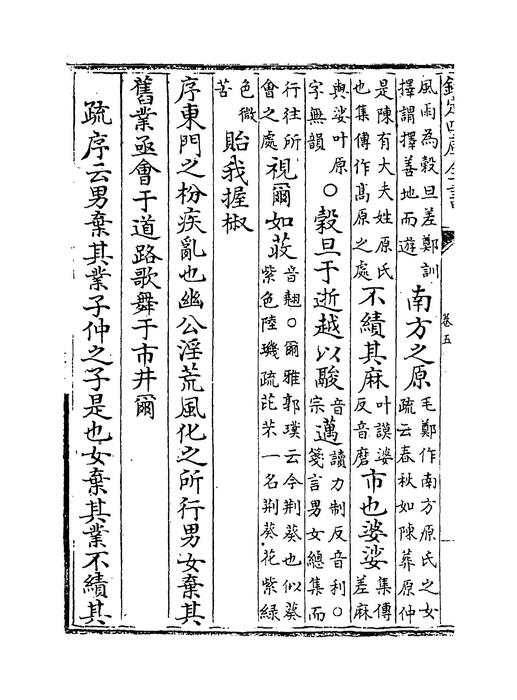 欽定四庫全書 卷五
風雨為穀旦差鄭訓擇謂擇善地而遊南方之原毛鄭作南方原氏之女疏云春秋如陳葬原仲
是陳有大夫姓原氏也集傳作髙原之處不績其麻叶謨婆反音磨市也婆娑集傳差麻
與娑叶原字無韻○穀旦于逝越以鬷音宗邁讀力制反音利○箋言男女總集而
行往所會之處視爾如荍音翹○爾雅郭璞云今荆葵也似葵紫色陸璣疏芘芣一名荆葵花紫緑
色微苦貽我握椒
序東門之枌疾亂也幽公淫荒風化之所行男女棄其
舊業亟會于道路歌舞于市井爾
疏序云男棄其業子仲之子是也女棄其業不績其